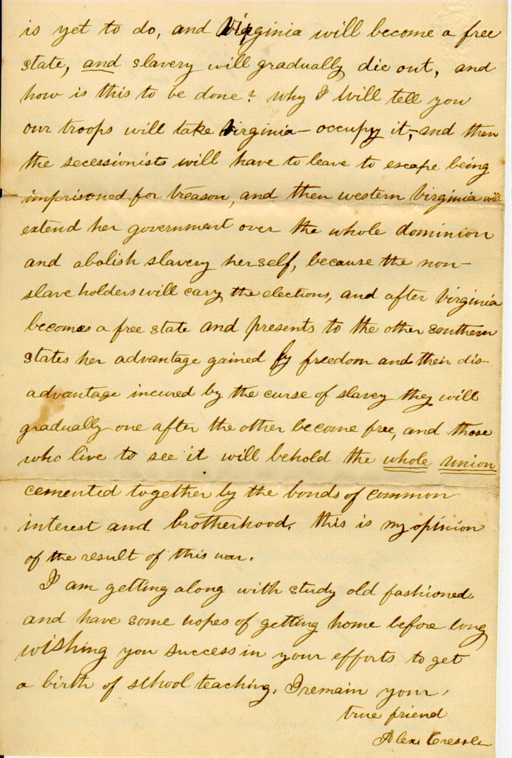 is yet to do, and Virginia will become a free
state, and slavery will gradually die out, and
how is this to be done? why I will tell you
our troops will take Virginia – occupy it, and then
the secessionists will have to leave to escape being
imprisoned for treason, and then western Virginia will
extend her government over the whole dominion
and abolish slavery herself, because the non-
slave holders will cary the elections, and after Virginia
becomes a free state and presents to the other southern
states her advantage gained by freedom and their dis-
advantage incured by the curse of slavey they will
gradually one after the other become free, and those
who live to see it will behold the whole union
cemented together by the bonds of common
interest and brotherhood, this is my opinion
of the result of this war.
I am getting along with study old fashioned
and have some hopes of getting home before long
wishing you success in your efforts to get
a birth of school teaching, I remain your,
true friend
Alex Cressler